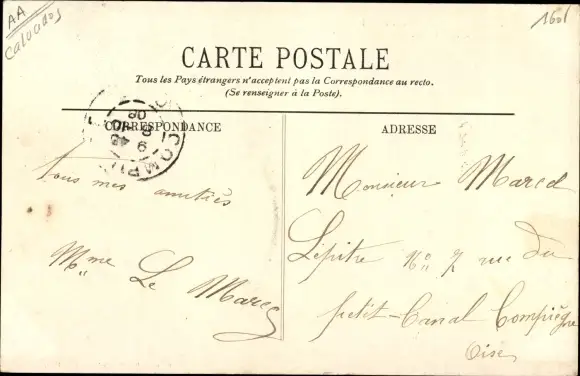 AA
Calvados
1601
CARTE POSTALE
Tous les Pays étrangers n'acceptent pas la Correspondance au recto.
(Se renseigner à la Poste).
CORRESPONDANCE
ADRESSE
COMPI
tous mes amitiés
Mme Le Marec
Monsieur Marcel
Lepitre No 7 rue du
petit-Canal Compiègne
Oise